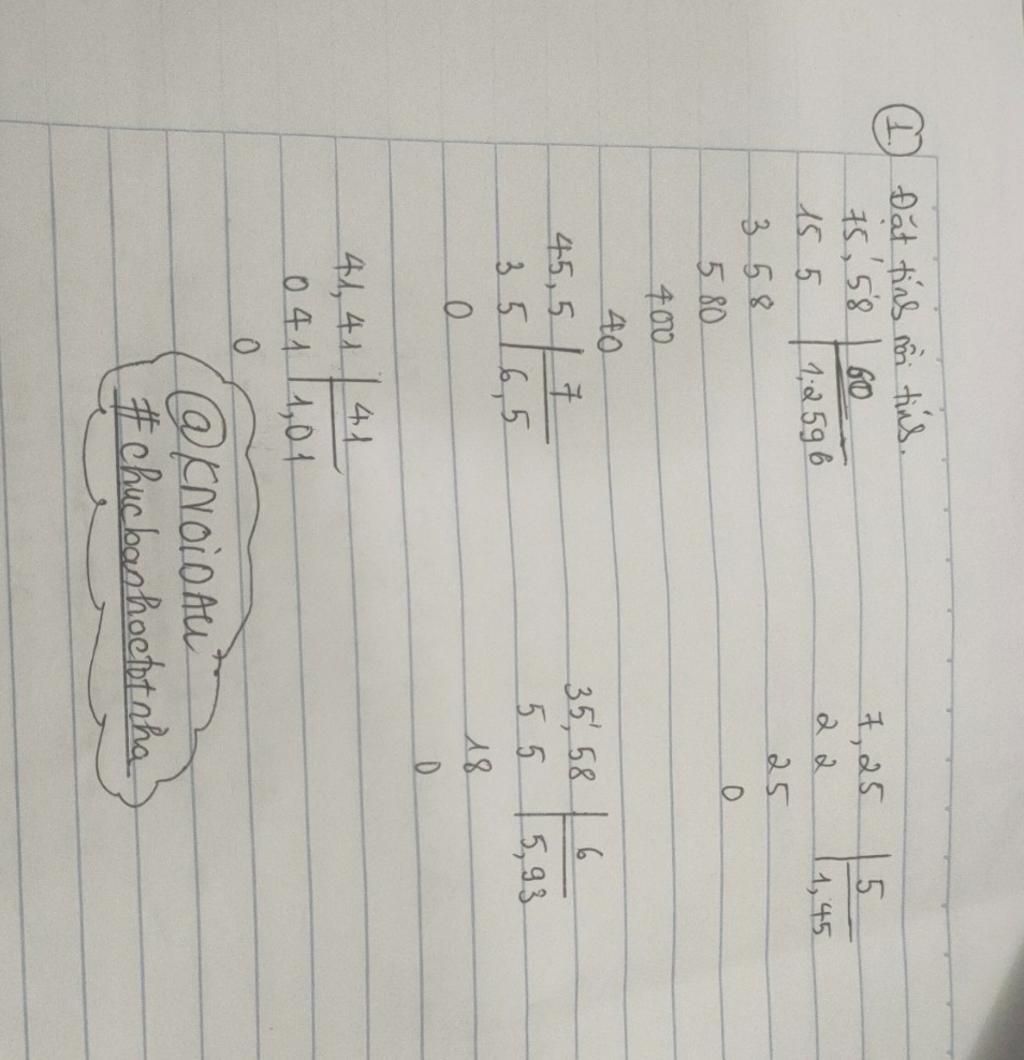 1. Đặt tính rồi tính.
75,58 60
15 5 1,2596
3 58
580
400
40
7,25 5
2 2 1,45
25
0
45,5 7
3 5 6,5
0
35,58 6
5 5 5,93
18
0
41,41 41
0 41 1,01
0
@KNOiDAU
#chucbanhoctotnha